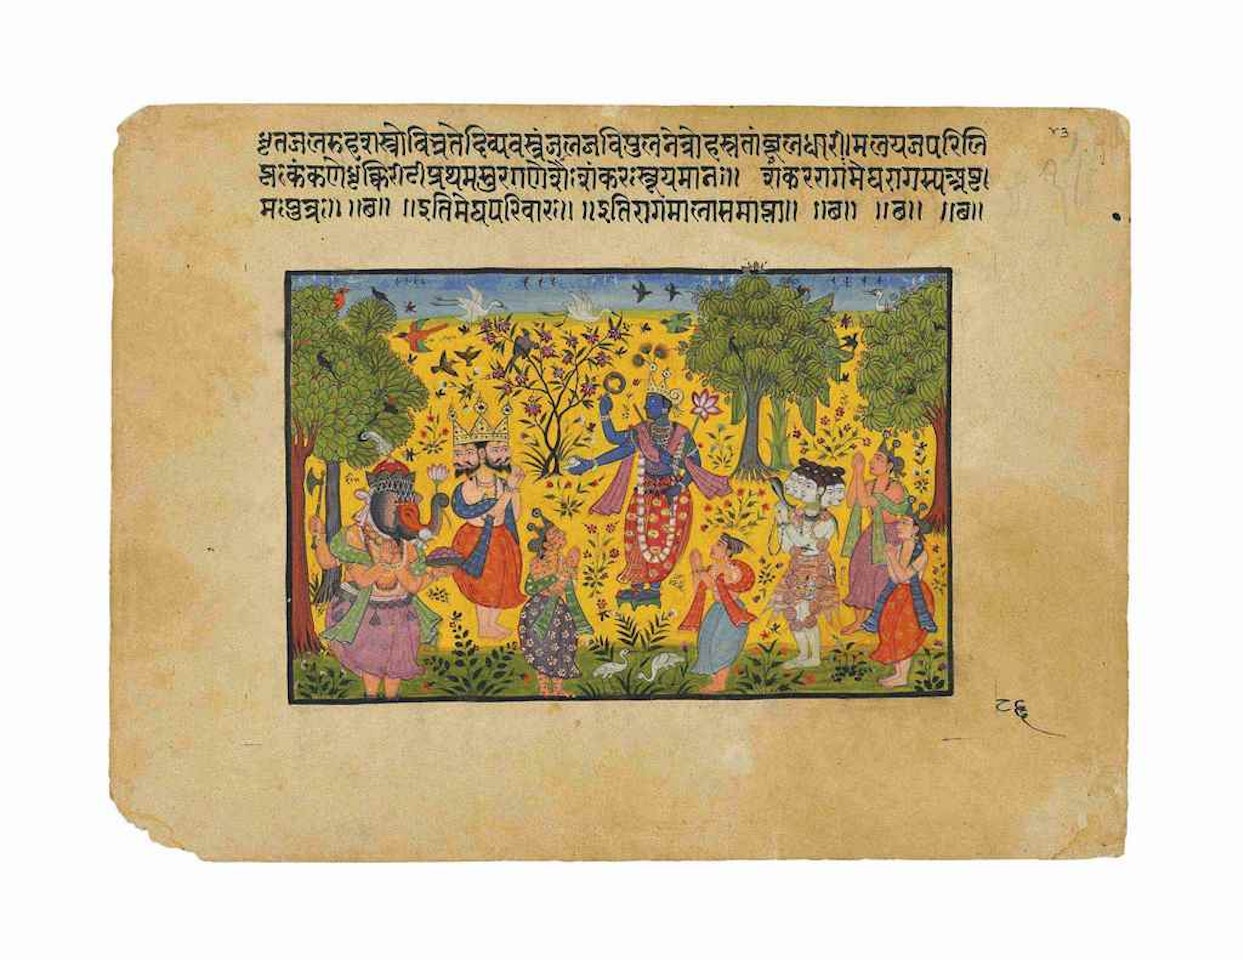 ४३
धृतजलरुहशस्त्रोबिभ्रतेदिव्यवस्त्रंजलजविपुलनेत्रोहस्ततांबूलधारी।मलयजपरिलि
प्तःकंकणैर्धृक्किरीटीप्रथमसुरगणेशैःशंकरःस्तूयमानः॥ शंकररागमेघरागस्यअष्ट
मःपुत्रः॥॥ब॥ ॥इतिमेघपरिवारः॥ ॥इतिरागमालासमाप्ता॥ ॥ब॥ ॥ब॥ ॥ब॥
८६